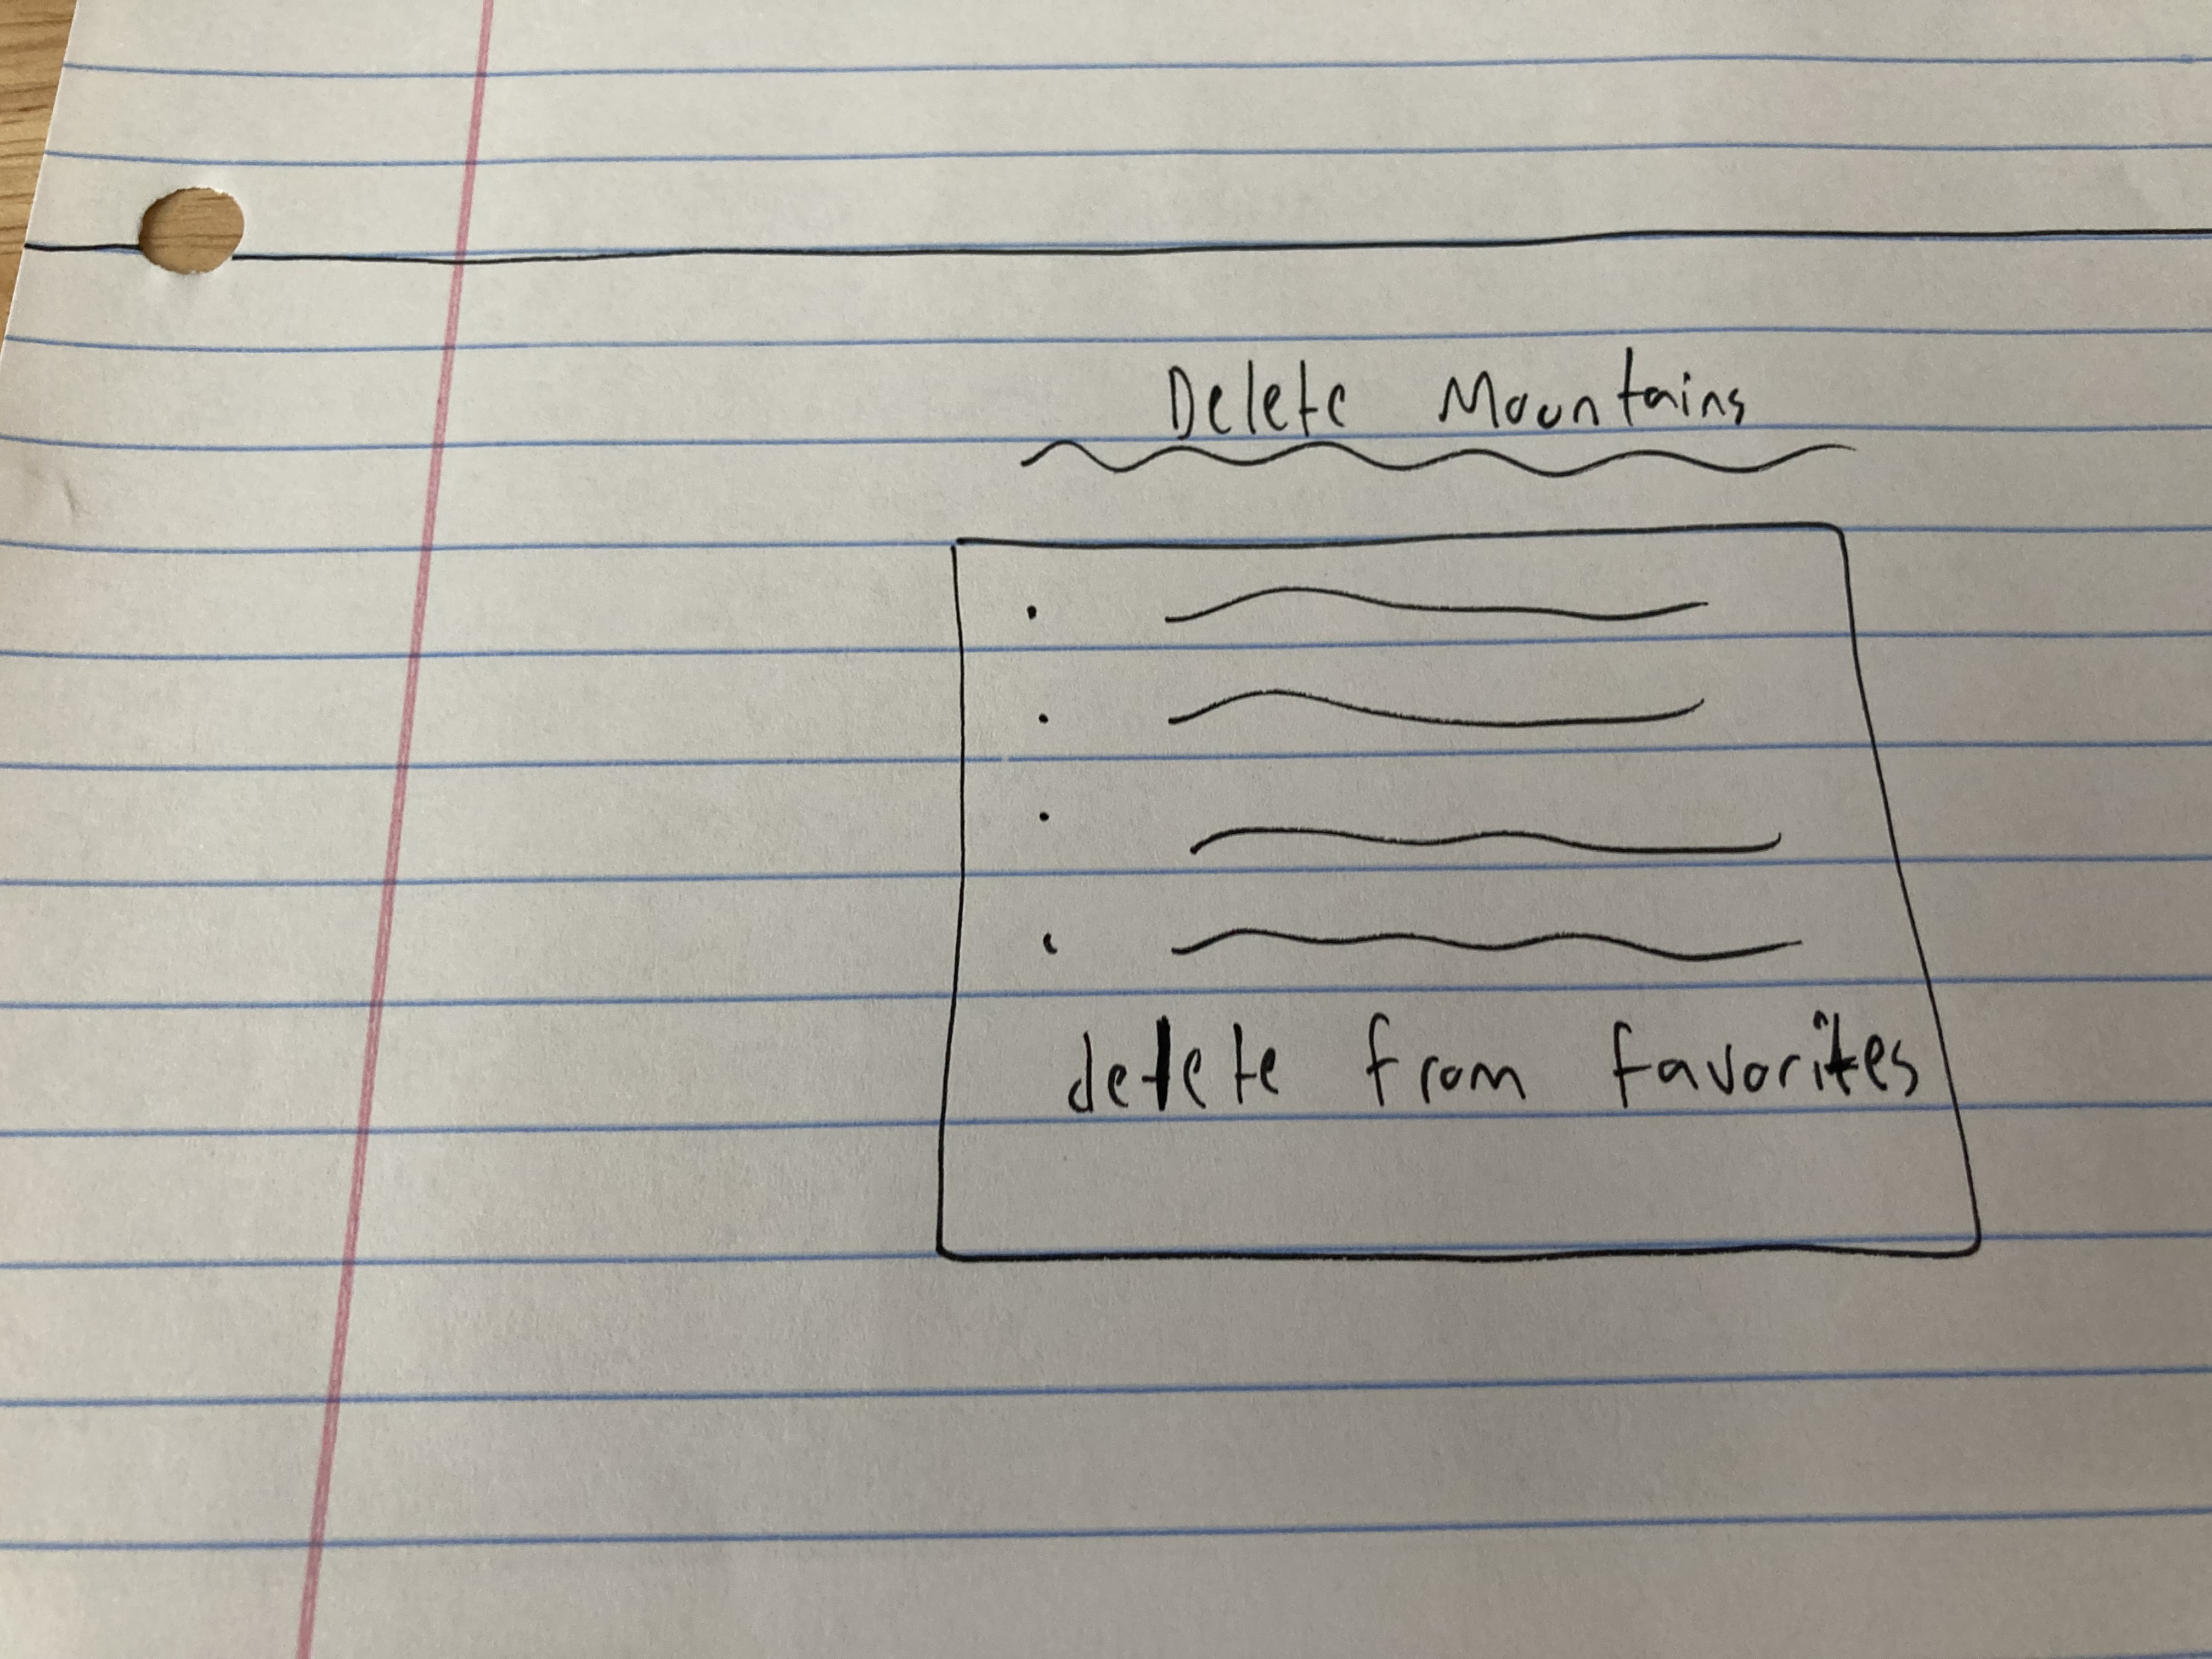 Delete Mountains
delete from favorites